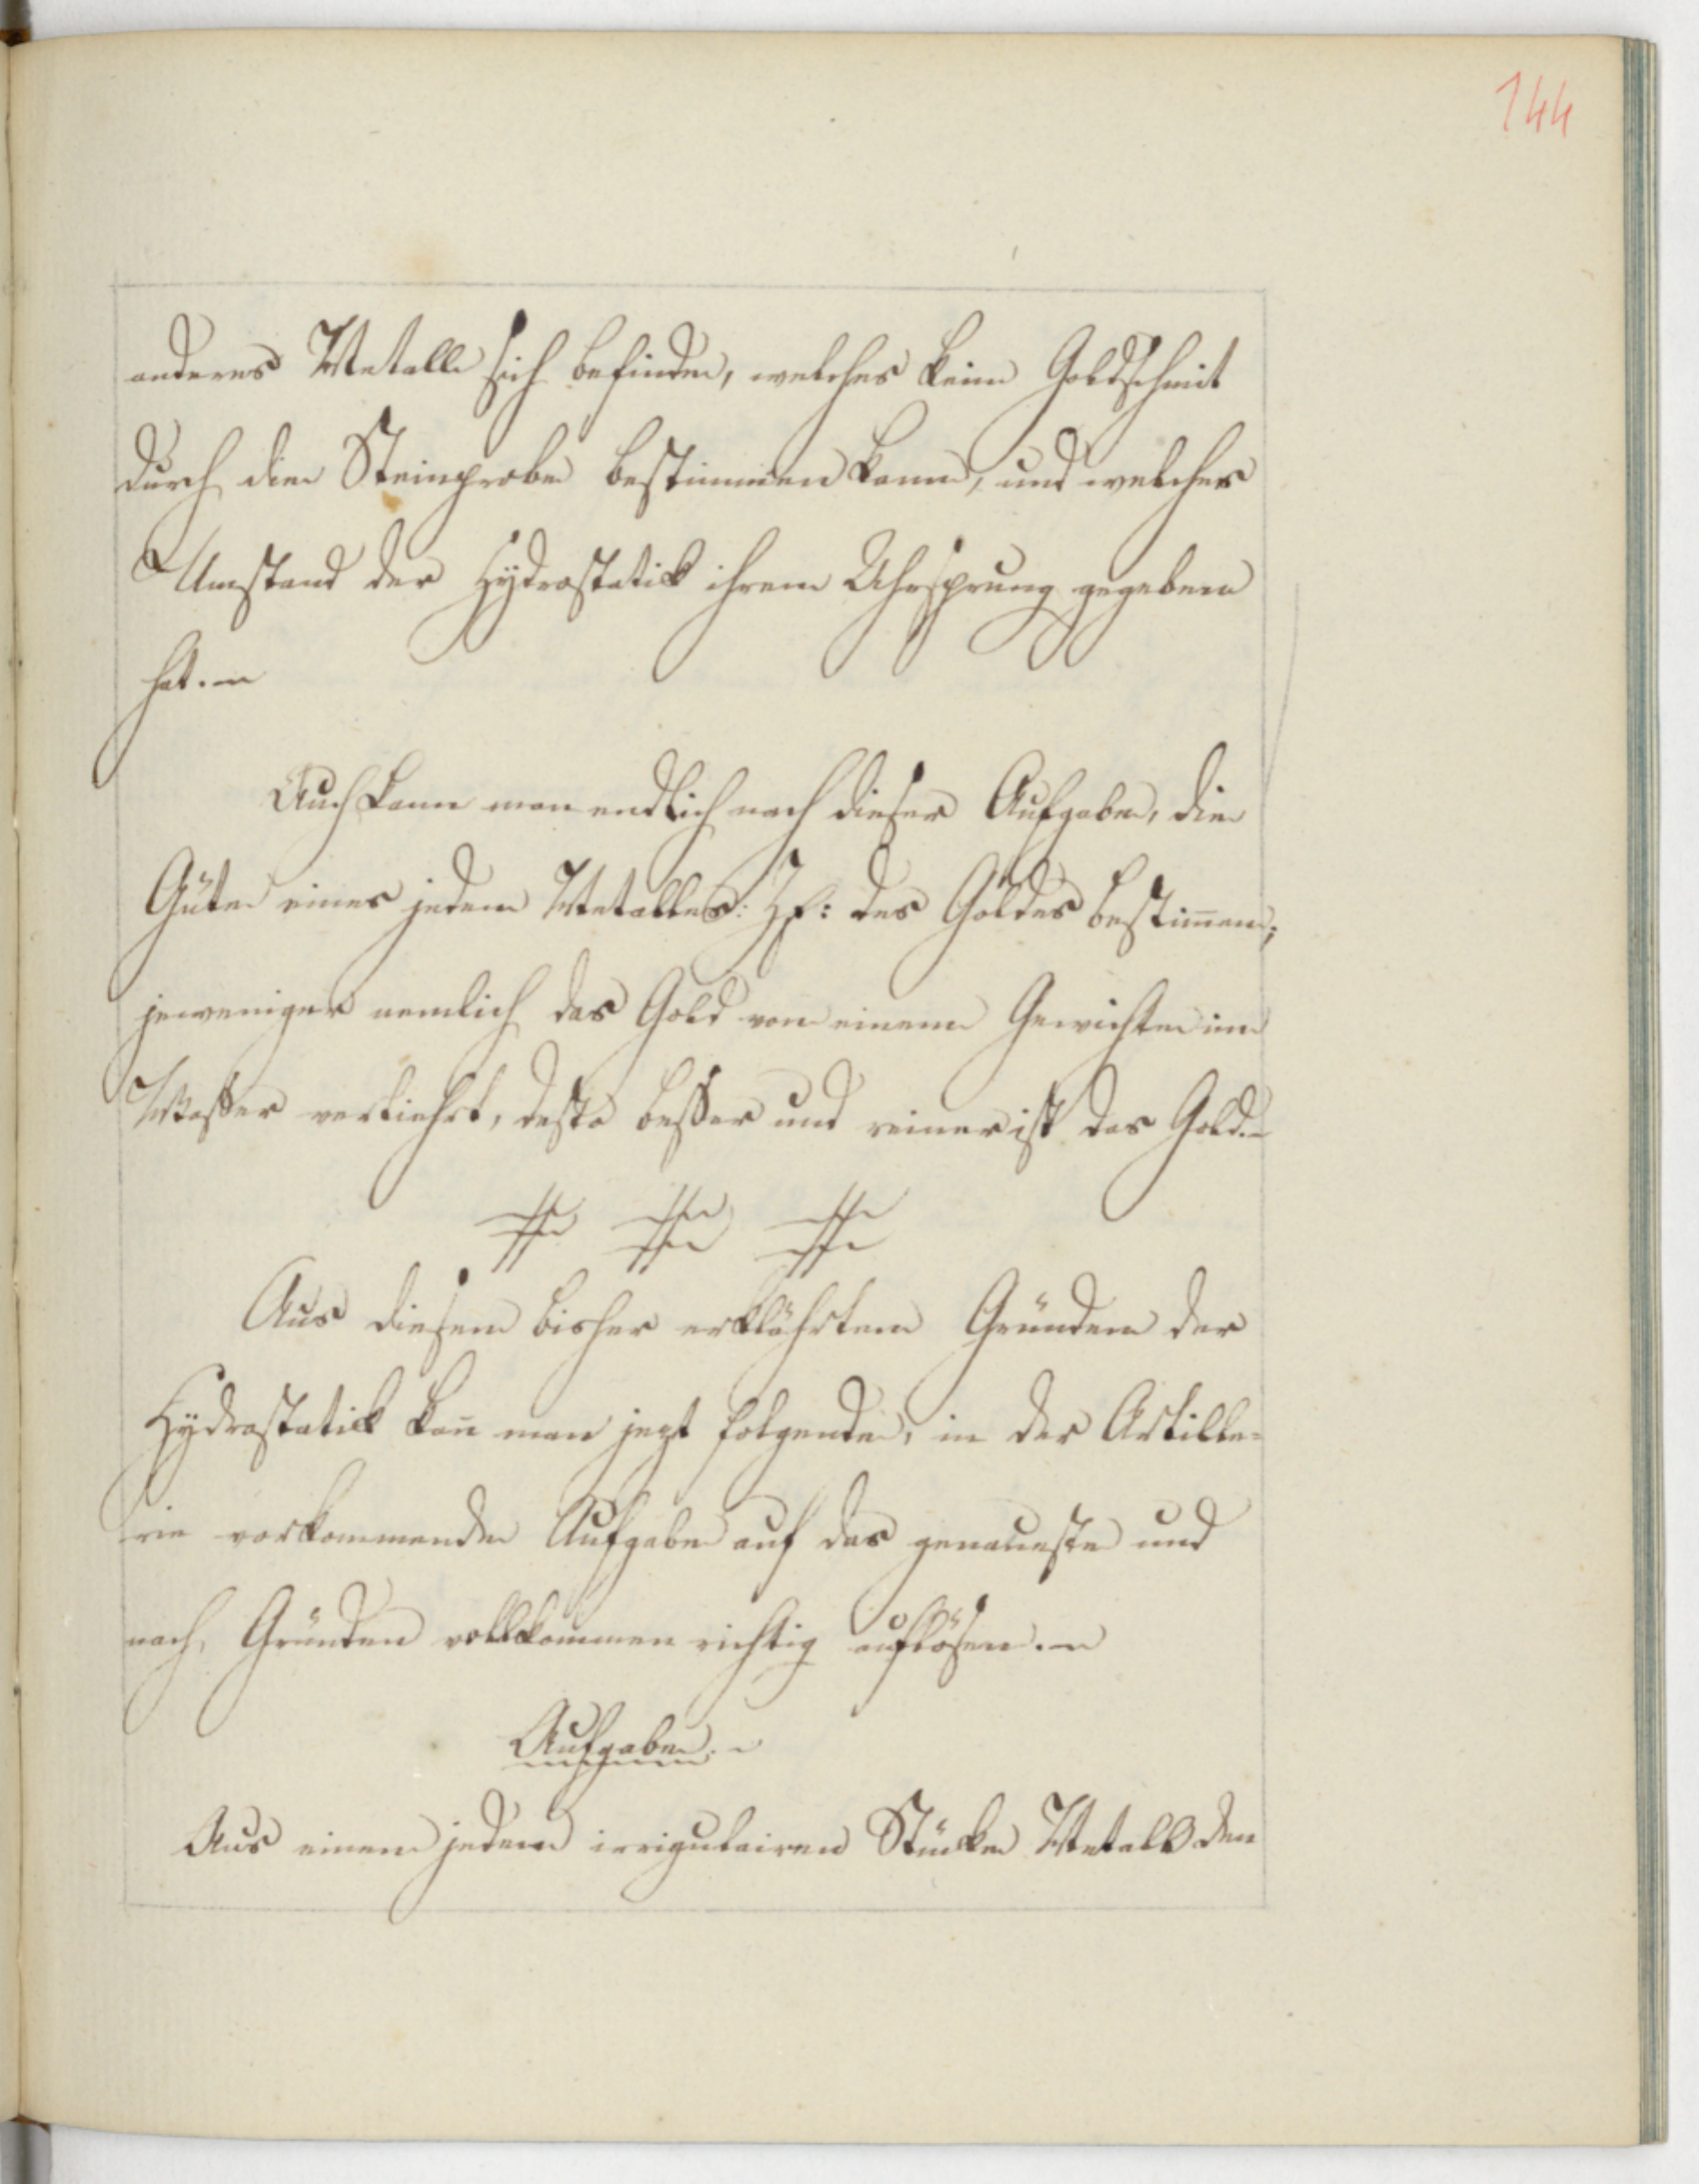 144
anderes Metall sich befinde, welches kein Goldschmit
durch die Steinprobe bestimmen kann, und welcher
Umstand der Hÿdrostatik ihren Uhrsprung gegeben
hat.
Auch kann man endlich nach dieser Aufgabe, die
Güte eines jeden Metalles: Z.E: des Goldes bestim̄en;
jeweniger nemlich das Gold von einem Gewichte im
Waßer verliehrt, desto beßer und reiner ist das Gold.
Aus diesen bisher erklährten Gründen der
Hÿdrostatik kan̄ man jezt folgende, in der Artille=
rie vorkommende Aufgabe auf das genaueste und
nach Gründen vollkommen richtig auflösen.
Aufgabe.
Aus einem jeden irrigulairen Stücke Metall den